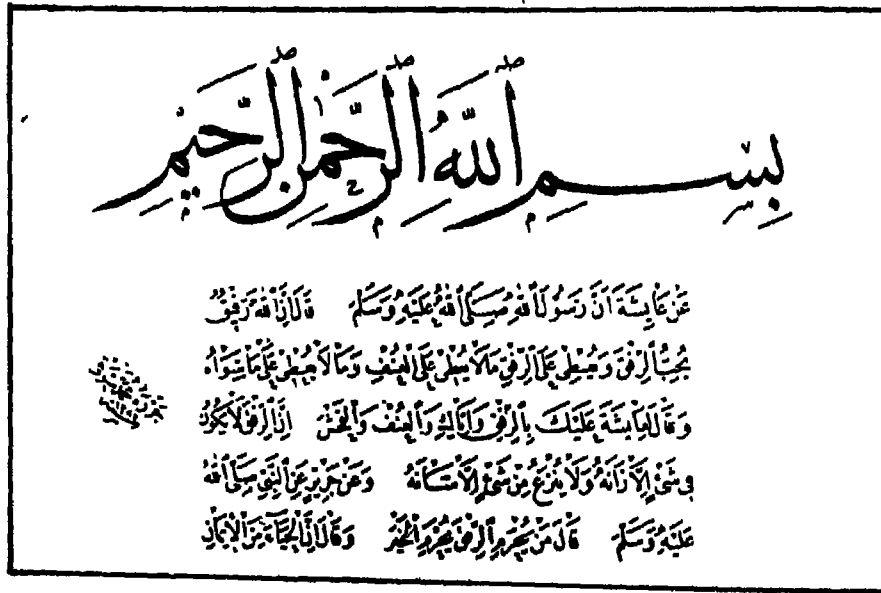 بِسْمِ ٱللَّهِ ٱلرَّحْمٰنِ ٱلرَّحِيمِ
عَنْ عَائِشَةَ اَنَّ رَسُولَ ٱللهِ صَلَّى ٱللهُ عَلَيْهِ وَسَلَّمَ قَالَ اِنَّ ٱللهَ رَفِيقٌ
يُحِبُّ ٱلرِّفْقَ وَيُعْطِي عَلَى ٱلرِّفْقِ مَا لَا يُعْطِي عَلَى ٱلْعُنْفِ وَمَا لَا يُعْطِي عَلَى مَا سِوَاهُ
وَقَالَ لِعَائِشَةَ عَلَيْكَ بِالرِّفْقِ وَاِيَّاكِ وَٱلْعُنْفَ وَٱلْفُحْشَ اِنَّ ٱلرِّفْقَ لَا يَكُونُ
فِي شَيْءٍ اِلَّا زَانَهُ وَلَا يُنْزَعُ مِنْ شَيْءٍ اِلَّا شَانَهُ وَعَنْ جَرِيرٍ عَنِ ٱلنَّبِيِّ صَلَّى ٱللهُ
عَلَيْهِ وَسَلَّمَ قَالَ مَنْ يُحْرَمِ ٱلرِّفْقَ يُحْرَمِ ٱلْخَيْرَ وَقَالَ اِنَّ ٱلْحَيَاءَ مِنَ ٱلْاِيمَانِ